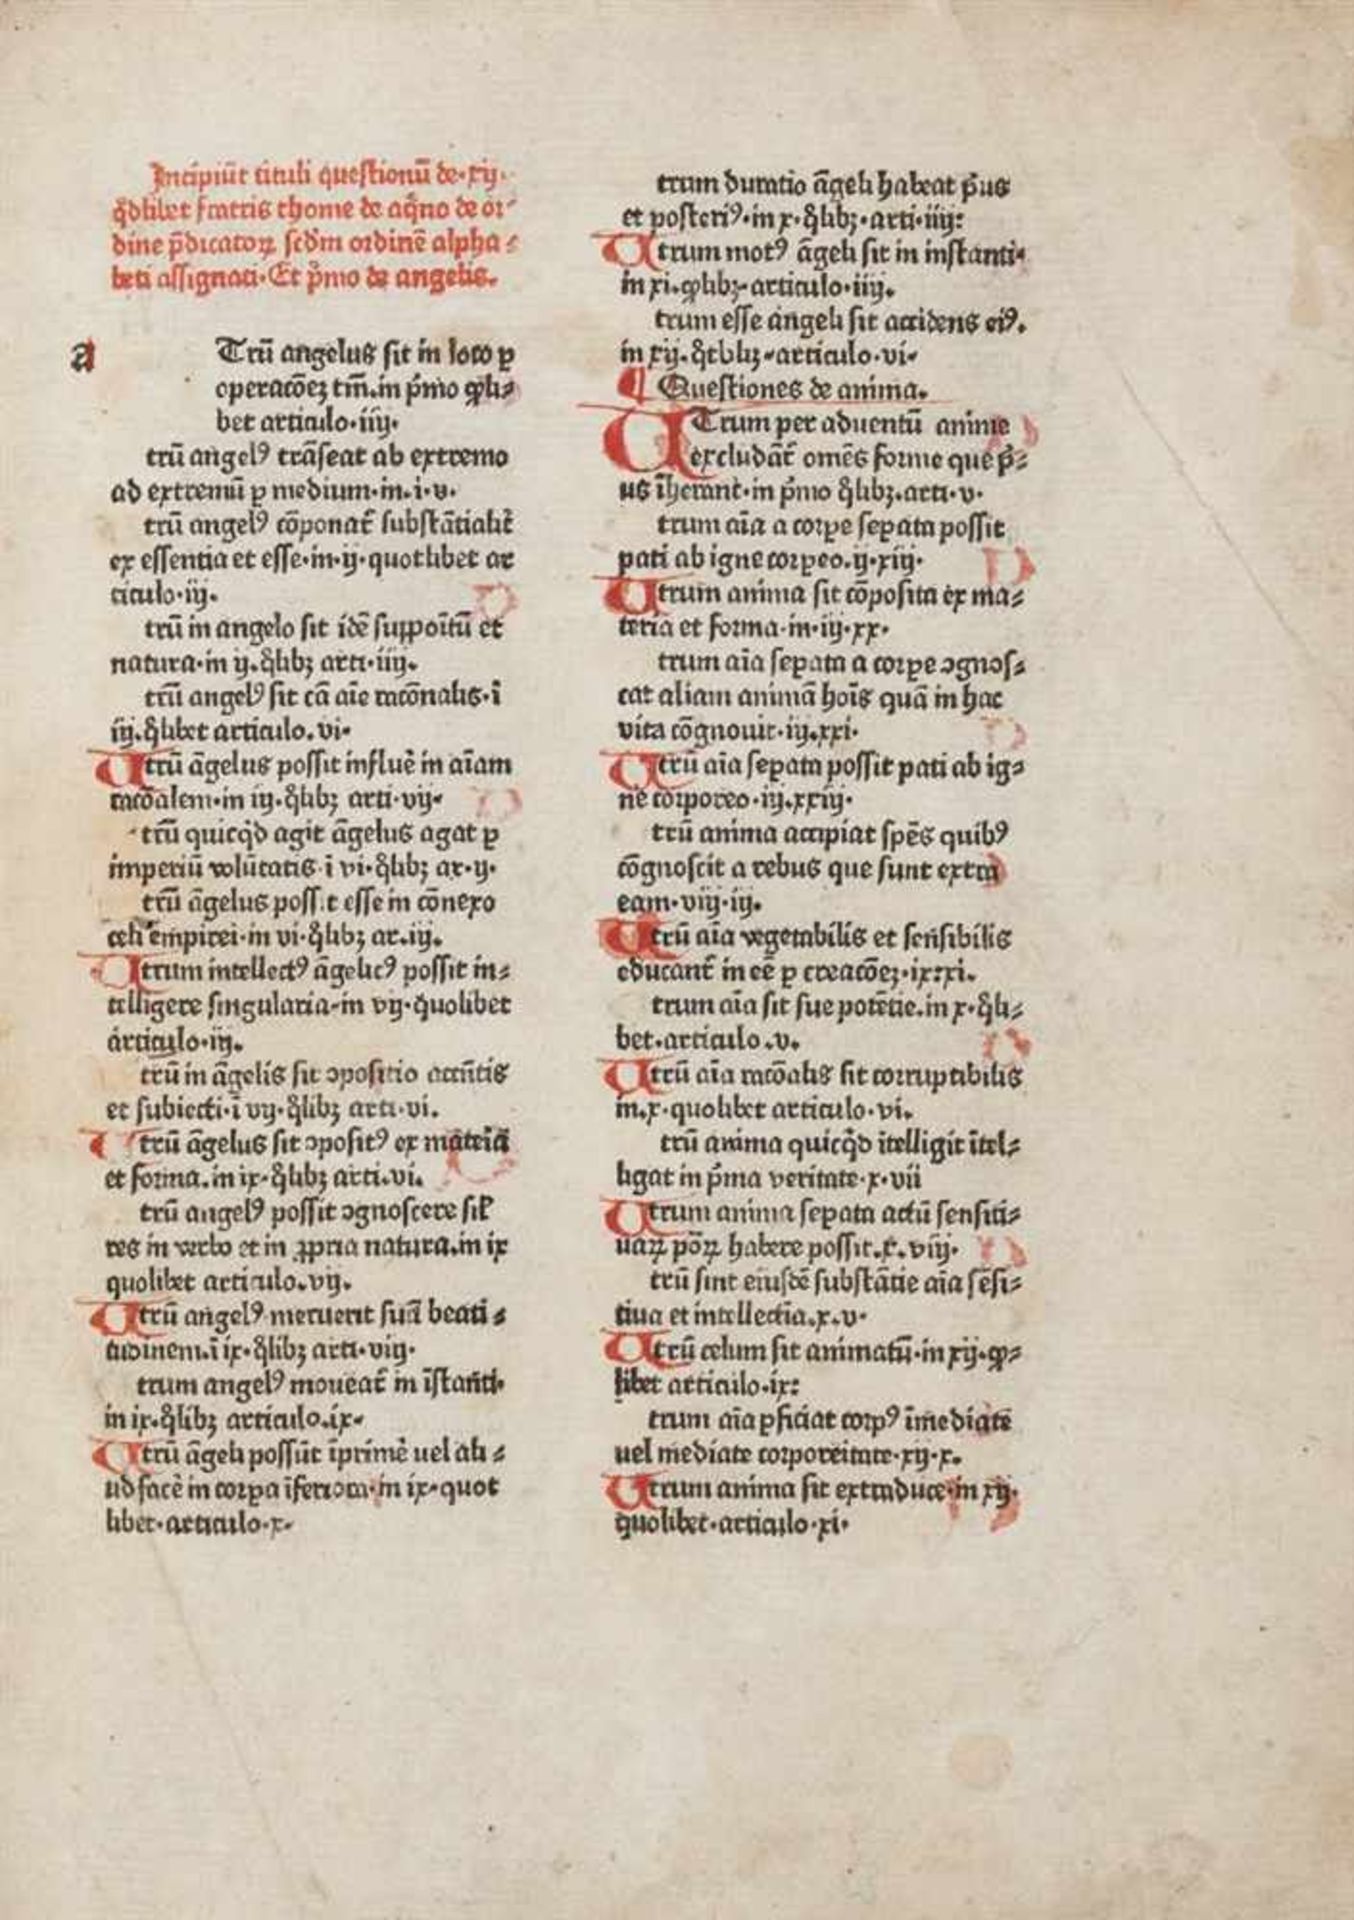 Incipiūt tituli questionū de·xij·
qͦdlibet fratris thome de aqͥno de or⸗
dine p̄dicatoꝝ scd̄m ordinē alpha⸗
beti assignati·Et pͥmo de angelis.
a
Trū angelus sit in loco ꝑ
operacōeꝫ tm̄.in pͥmo qͦli⸗
bet articulo·iiij·
trū angelꝰ trāseat ab extremo
ad extremū ꝑ medium·in.i·v·
trū angelꝰ cōponat̄ substātialit̄
ex essentia et esse·in·ij·quotlibet ar
ticulo·iij·
trū in angelo sit idē suppoītū et
natura·in ij.qͦlibꝫ arti·iiij.
trū angelꝰ sit cā aīe racōnalis·ī
iij.qͦlibet articulo.vi·
Utrū āgelus possit influē in aīam
racōalem·in iij.qͦlibꝫ arti·vij·
trū quicqͥd agit āgelus agat ꝑ
imperiū volūtatis·ī vi·qͦlibꝫ ar·ij·
trū āgelus possit esse in cōnexo
celi empirei·in vi·qͦlibꝫ ar.iij.
Utrum intellectꝰ āgelicꝰ possit in⸗
telligere singularia·in vij·quolibet
articulo·iij.
trū in āgelis sit ꝯpositio accn̄tis
et subiecti·ī vij·qͦlibꝫ arti·vi.
Utrū āgelus sit ꝯpositꝰ ex materia
et forma.in ix·qͦlibꝫ arti.vi.
trū angelꝰ possit ꝯgnoscere sil̄
res in verbo et in ꝓpria natura.in ix
quolibet articulo.vij.
Utrū angelꝰ meruerit suā beati⸗
tudinem.ī ix·qͦlibꝫ arti·viij·
trum angelꝰ moueat̄ in īstanti·
in ix·qͦlibꝫ articulo.ix·
Utrū āgeli possūt īprimē uel ali⸗
ud facē in corpa īferiora·in ix·quot
libet·articulo·x·
trum duratio āgeli habeat pͥus
et posteriꝰ·in x·qͦlibꝫ·arti·iiij:
Utrum motꝰ āgeli sit in instanti·
in xi.qͦlibꝫ·articulo·iiij.
trum esse angeli sit accidens eiꝰ.
in xij.qͦtlibꝫ·articulo·vi·
¶ Questiones de anima.
UTrum per aduentū anime
excludāt̄ omēs forme que pͥ⸗
us īherant·in pͥmo qͦlibꝫ.arti·v·
trum aīa a corpe sepata possit
pati ab igne corpeo.ij·xiij·
Utrum anima sit cōposita ex ma⸗
teria et forma·in·iij·xx·
trum aīa sepata a corpe ꝯgnos⸗
cat aliam animā hoīs quā in hac
vita cōgnouit·iij.xxi·
Utrū aīa sepata possit pati ab ig⸗
ne corporeo·iij.xxiij·
trū anima accipiat spēs quibꝰ
cōgnoscit a rebus que sunt extra
eam·viij·iij.
Utrū aīa vegetabilis et sensibilis
educant̄ in eē ꝑ creacōeꝫ·ix:xi.
trum aīa sit sue potētie.in x·qͦli⸗
bet·articulo.v.
Utrū aīa racōalis sit corruptibilis
in.x·quolibet articulo·vi.
trū anima quicqͥd ītelligit ītel⸗
ligat in pͥma veritate·x·vii
Utrum anima sepata actū sensiti⸗
uaꝝ poꝝ habere possit.x.viij·
trū sint eiusdē substātie aīa sēsi⸗
tiua et intellectīa.x.v·
Utrū celum sit animatū·in xij·qͦ⸗
libet articulo·ix:
trum aīa ꝑficiat corpꝰ īmediate
uel mediate corporeitate·xij·x.
Utrum anima sit extraduce·in xij·
quolibet·articulo·xi·